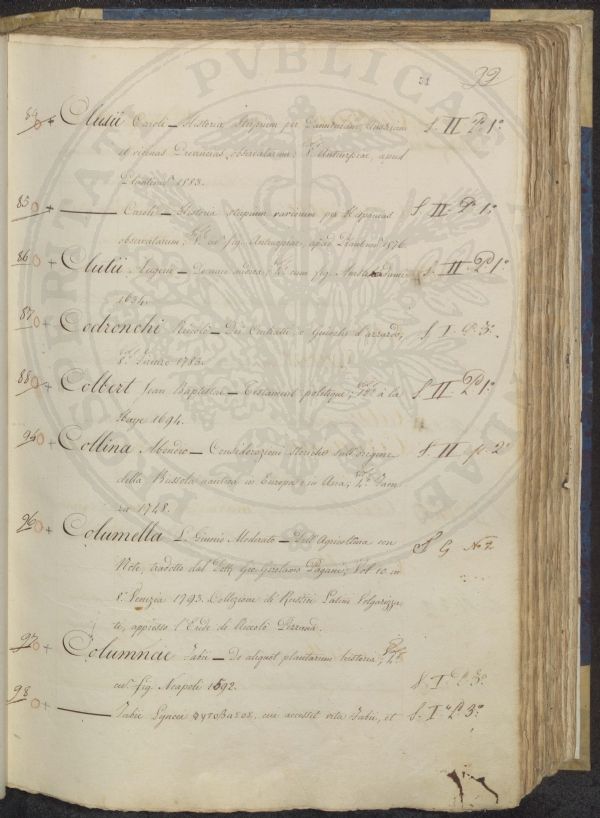 PUBLICAE
31 99
84 + Clusii Caroli — Historia stirpium per Pannoniam, Austriam S. II. P. 1.º
et vicinas Provincias observatarum; 8.º Antuerpiae, apud
Plantin. 1583.
85 + ——— Caroli — Historia stirpium rariorum per Hispanias S. II. P. 1.º
observatarum 8.º cum fig. Antuerpiae, apud Plantin. 1576
86 + Clutii Augerii — De nuce medica; 4.º cum fig. Amstelodami S. II. P. 1.º
1634.
87 + Codronchi Nicolò — Dei Contratti e Giuochi d'azzardo, S. I. P. 3.º
1783.
88 + Colbert Jean Baptiste — Testament politique; 12.º à la S. II. P. 1.º
Haye 1694.
94 + Collina Abondio — Considerazioni storiche sull'origine S. II. P. 2.º
della Bussola nautica in Europa e in Asia; 4.º Faen
za 1748.
96 + Columella L. Giunio Moderato — Dell'Agricoltura con S. G. N.º 2
Note, tradotto dal Dott. Gio. Girolamo Pagani; Vol. 10. in
8.º Venezia 1793. Collezione di Rustici Latini Volgarizza
ti, appresso l'Erede di Niccolò Pezzana.
97 + Columnae Fabii — De aliquot plantarum historia; 4.º
cum fig. Neapoli 1592. S. I. P. 3.º
98 + ——— Fabii Lyncei φυτοβασανος, cui accessit vita Fabii, et S. I. P. 3.º